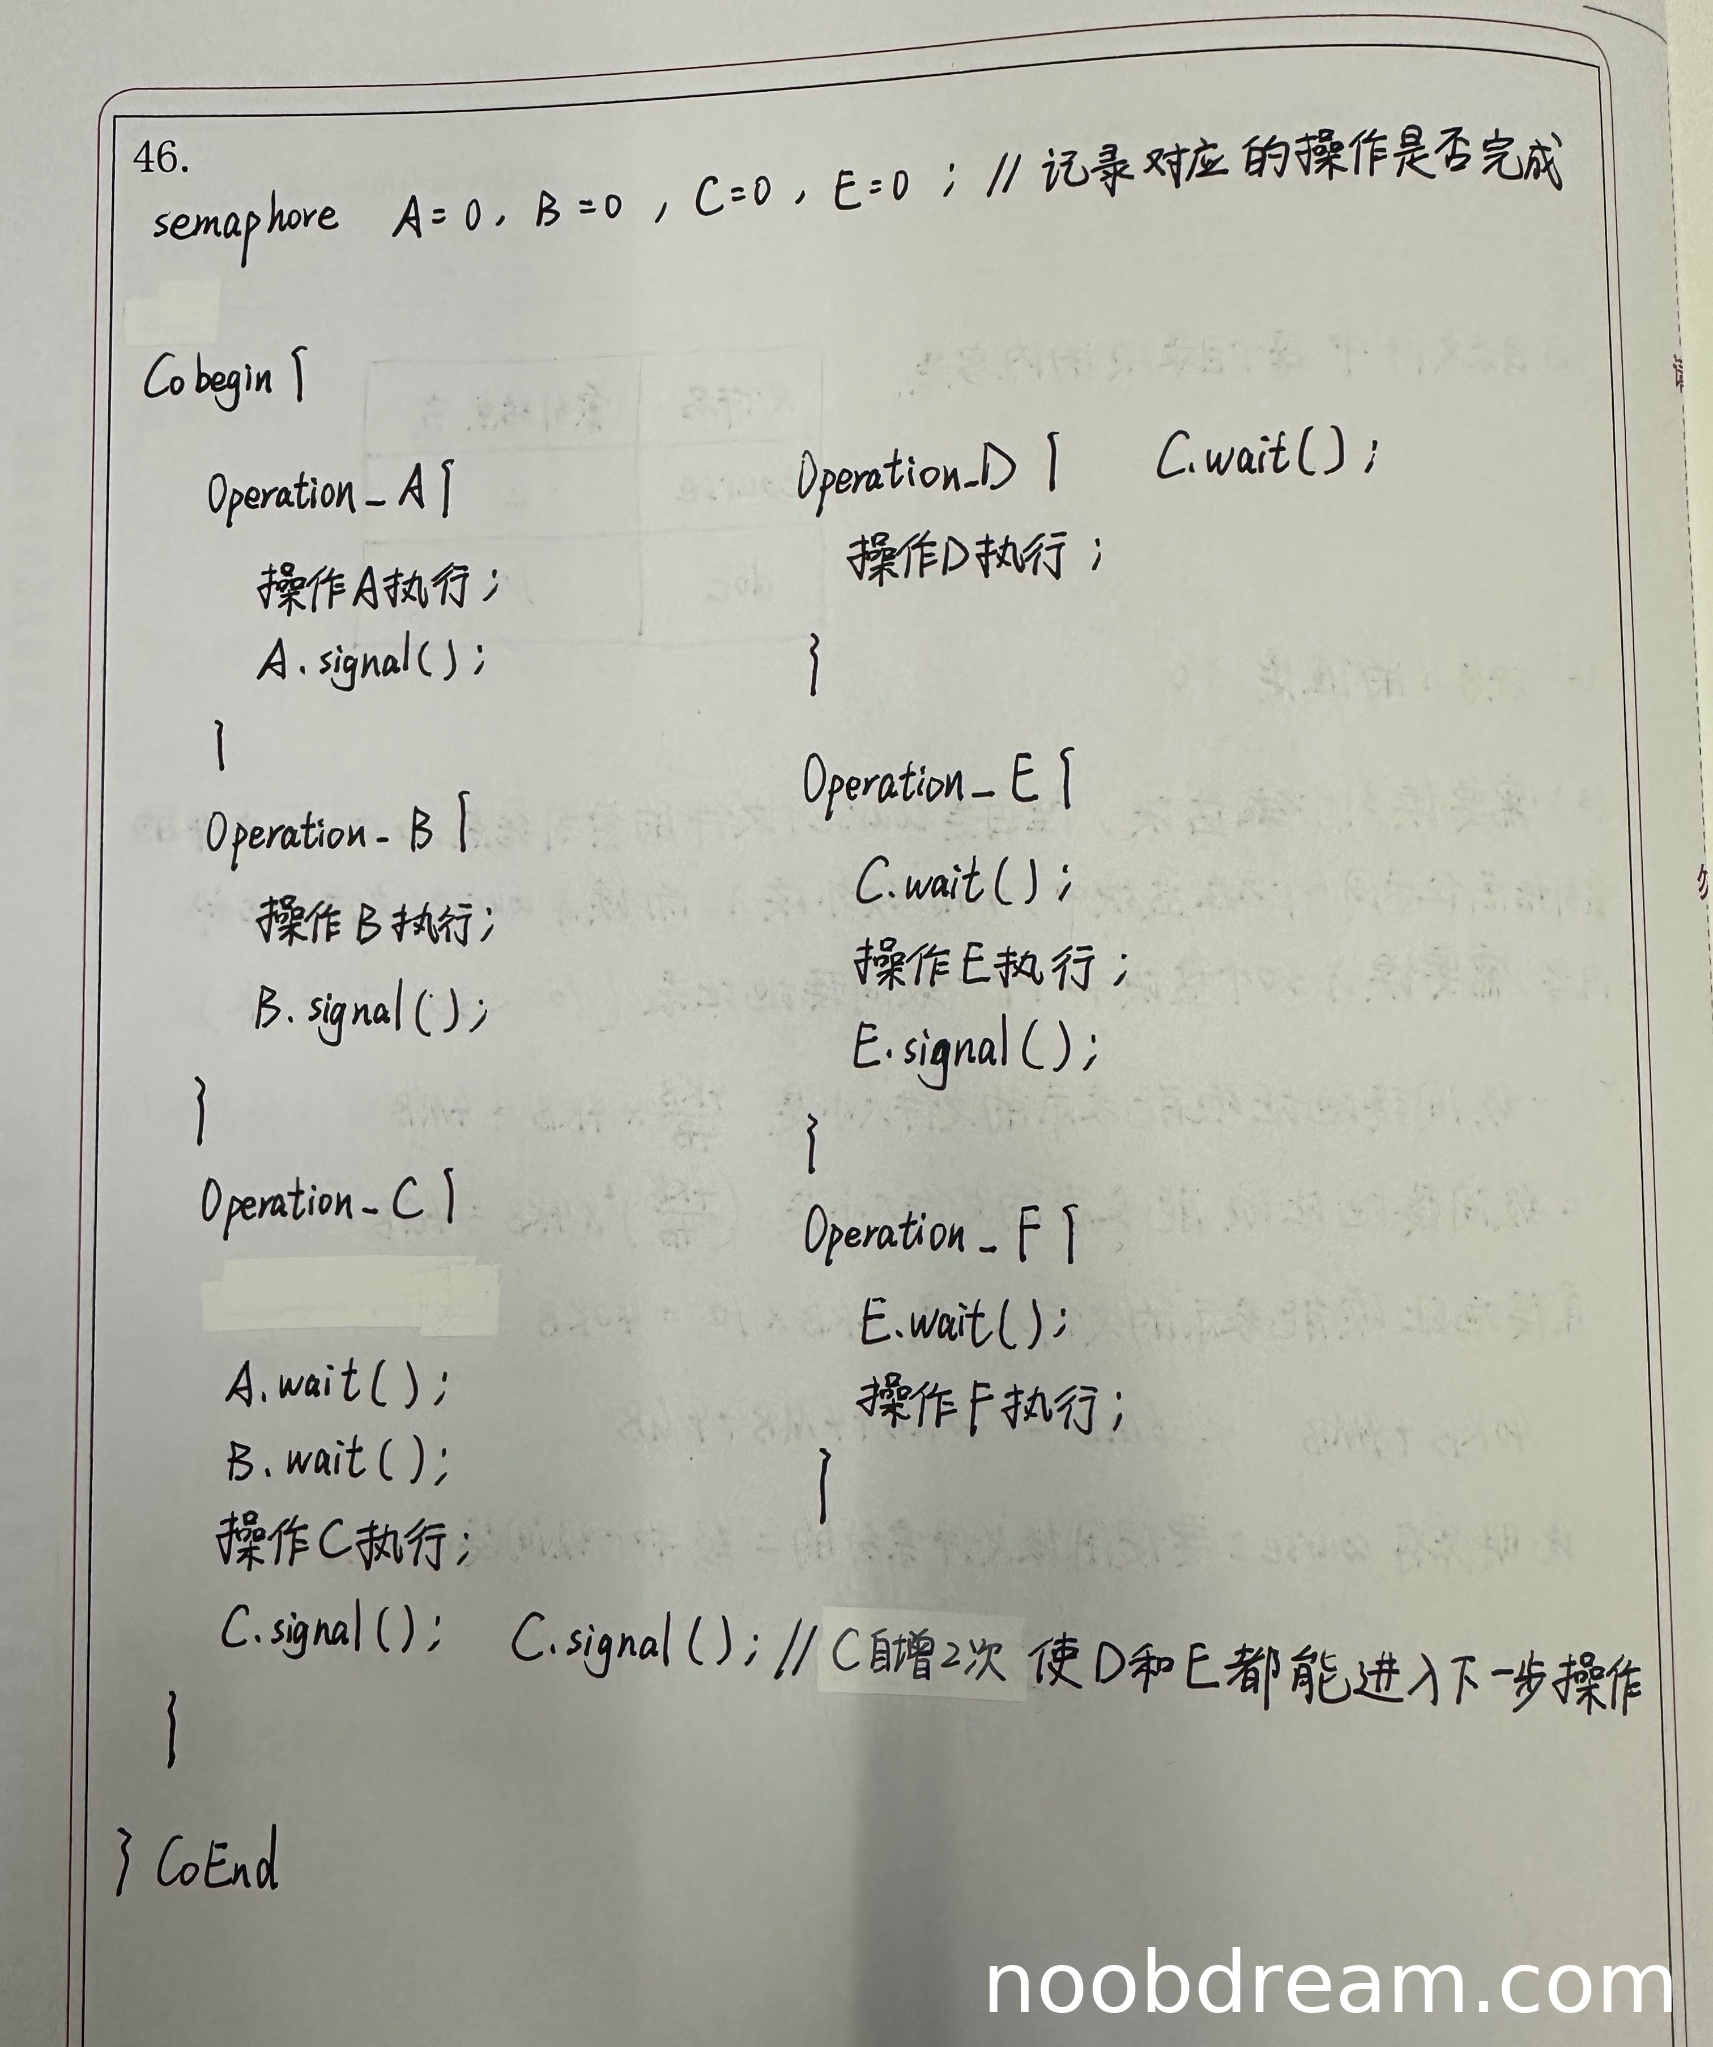 46.
semaphore A=0, B=0, C=0, E=0; // 记录对应的操作是否完成
Cobegin {
Operation_A {
操作A执行;
A.signal();
}
Operation_B {
操作B执行;
B.signal();
}
Operation_C {
A.wait();
B.wait();
操作C执行;
C.signal(); C.signal(); // C自增2次 使D和E都能进入下一步操作
}
Operation_D { C.wait();
操作D执行;
}
Operation_E {
C.wait();
操作E执行;
E.signal();
}
Operation_F {
E.wait();
操作F执行;
}
} CoEnd
noobdream.com